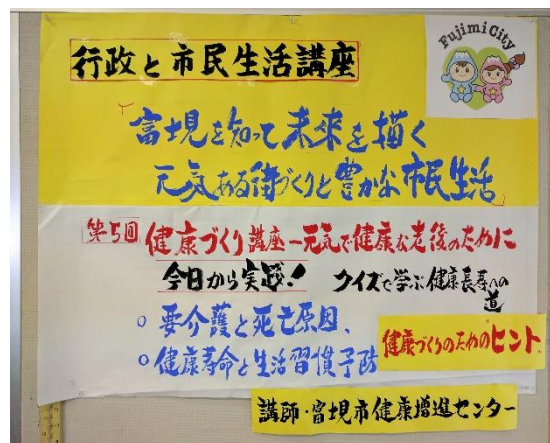 Fujimi City
行政と市民生活講座
富士見を知って未来を描く
元気ある街づくりと豊かな市民生活
第5回 健康づくり講座-元気で健康な老後のために
今日から実践! クイズで学ぶ健康長寿への道
○ 要介護と死亡原因、
○ 健康寿命と生活習慣予防
健康づくりのためのヒント
講師・富士見市健康増進センター